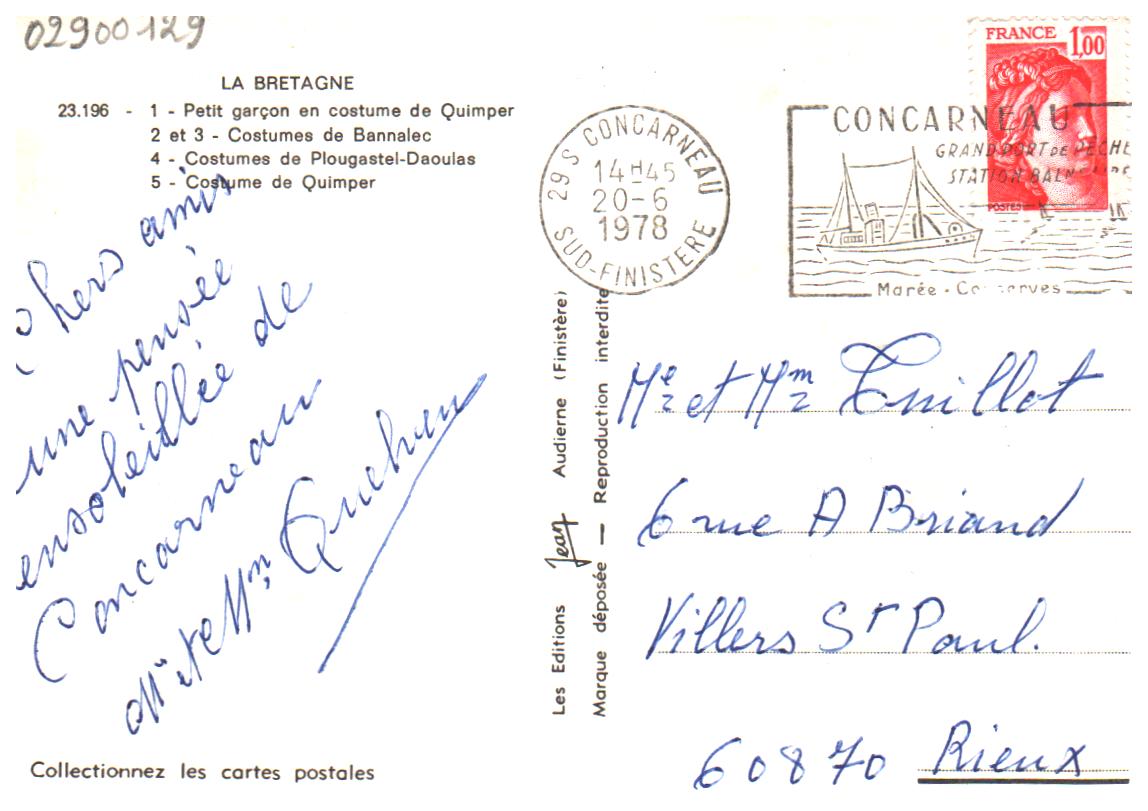 02900129
LA BRETAGNE
23.196 - 1 - Petit garçon en costume de Quimper
2 et 3 - Costumes de Bannalec
4 - Costumes de Plougastel-Daoulas
5 - Costume de Quimper
Chers amis
une pensée
ensoleillée de
Concarneau
Mr et Mm Quehen
Collectionnez les cartes postales
Les Editions Jean Audierne (Finistère)
Marque déposée — Reproduction interdite
29 S CONCARNEAU
14H45
20-6
1978
SUD-FINISTERE
CONCARNEAU
GRAND PORT DE PÊCHE
STATION BALNEAIRE
Marée - Conserves
FRANCE 1,00
POSTES
Me et Mm Tuillot
6 rue A Briand
Villers St Paul.
60870 Rieux